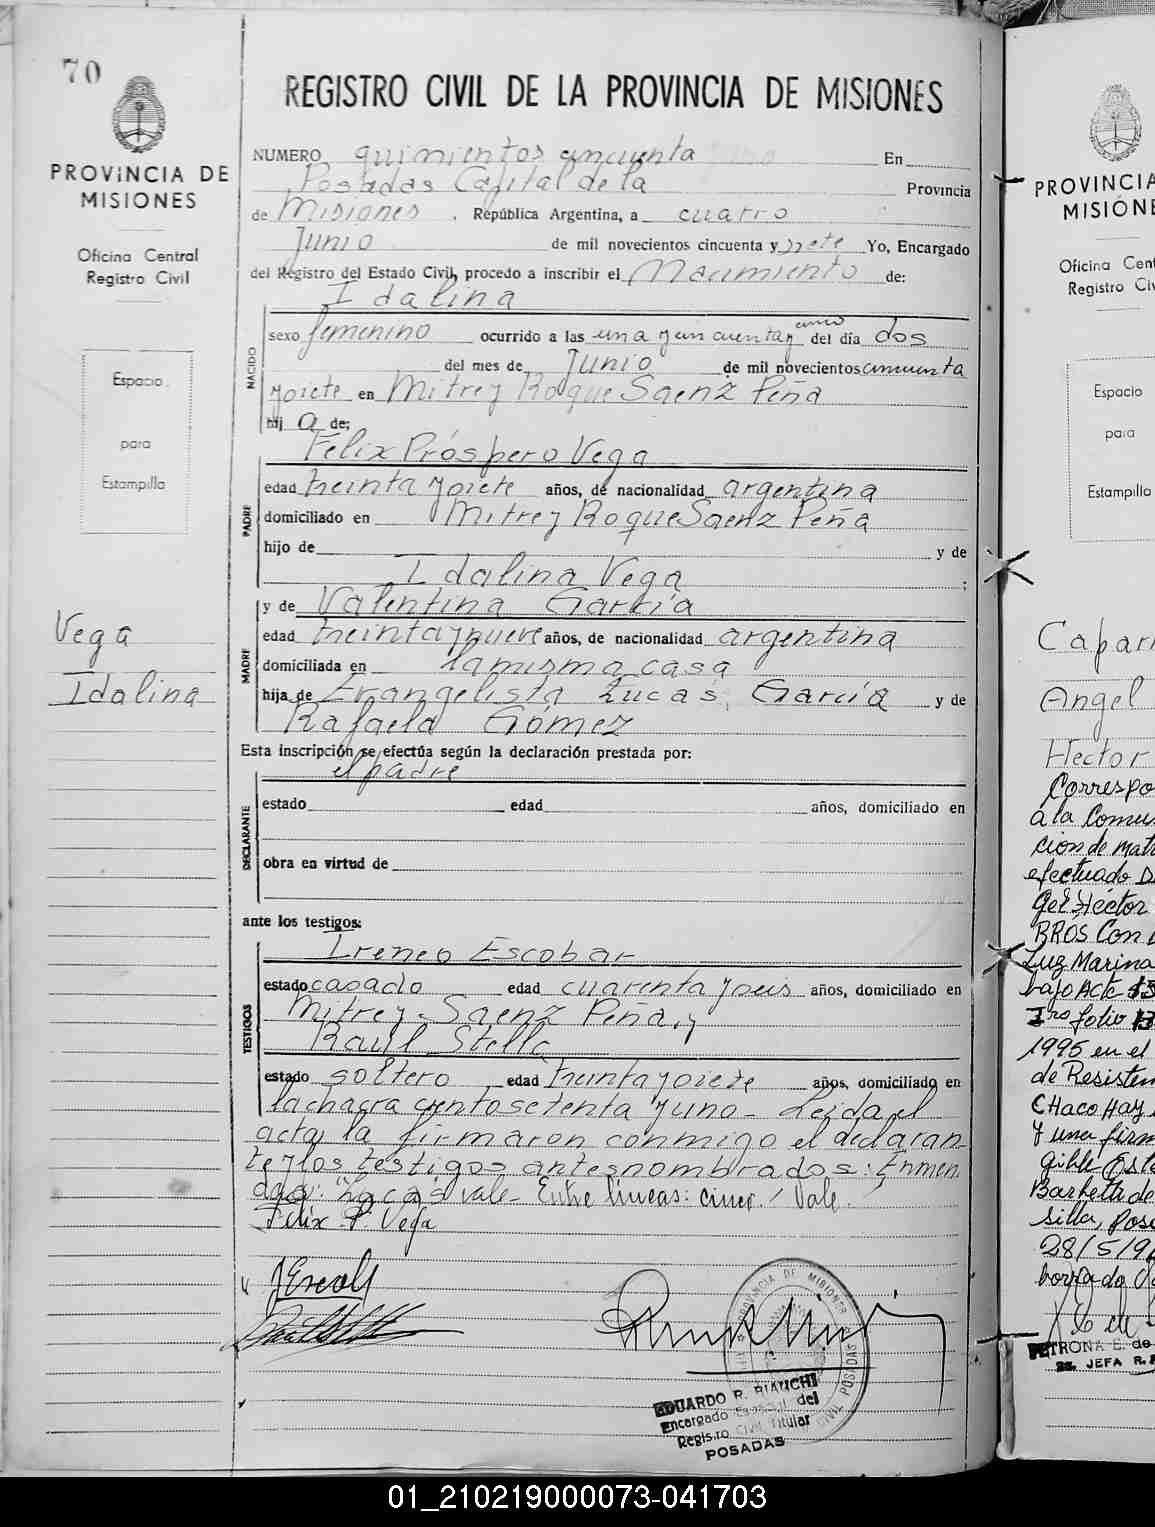 70
PROVINCIA DE
MISIONES
Oficina Central
Registro Civil
Espacio
para
Estampilla
Vega
Idalina
REGISTRO CIVIL DE LA PROVINCIA DE MISIONES
NUMERO quinientos cincuenta En
Posadas Capital de la Provincia
de Misiones, República Argentina, a cuatro
Junio de mil novecientos cincuenta y siete Yo, Encargado
del Registro del Estado Civil, procedo a inscribir el Nacimiento de:
Idalina
NACIDO
sexo femenino ocurrido a las una y cincuenta y cinco del día dos
del mes de Junio de mil novecientos cincuenta
y siete en Mitre y Roque Saenz Peña
hij a de:
Felix Próspero Vega
PADRE
edad treinta y siete años, de nacionalidad argentina
domiciliado en Mitre y Roque Saenz Peña
hijo de y de
Idalina Vega ;
y de Valentina García
MADRE
edad treinta y nueve años, de nacionalidad argentina
domiciliada en la misma casa
hija de Evangelista Lucas García y de
Rafaela Gómez
Esta inscripción se efectúa según la declaración prestada por:
el padre
DECLARANTE
estado edad años, domiciliado en
obra en virtud de
ante los testigos:
Ireneo Escobar
TESTIGOS
estado casado edad cuarenta y seis años, domiciliado en
Mitre y Saenz Peña, y
Raúl Stella
estado soltero edad treinta y siete años, domiciliado en
la chacra ciento setenta y uno - Leida el
acta, la firmaron conmigo el declaran-
te y los testigos antes nombrados: Enmen
dado: vale - Entre lineas: cinco! Vale.
Felix P. Vega
PROVINCIA DE MISIONES
POSADAS
EDUARDO R. BIAUCHI
Encargado del
Registro Civil Titular
POSADAS
PROVINCIA
MISIONE
Oficina Cent
Registro Civ
Espacio
para
Estampilla
Caparr
Angel
Hector
Correspo
a la Comun
cion de mat
efectuado
gel Héctor
BROS Con
Luz Marina
bajo Acta
Iro folio
1995 en el
de Resisten
CHaco Hay
y una firm
gible
Barbetti de
silla, Pos
28/5/9
borrado
PETRONA E. de
JEFA R. P
01_210219000073-041703